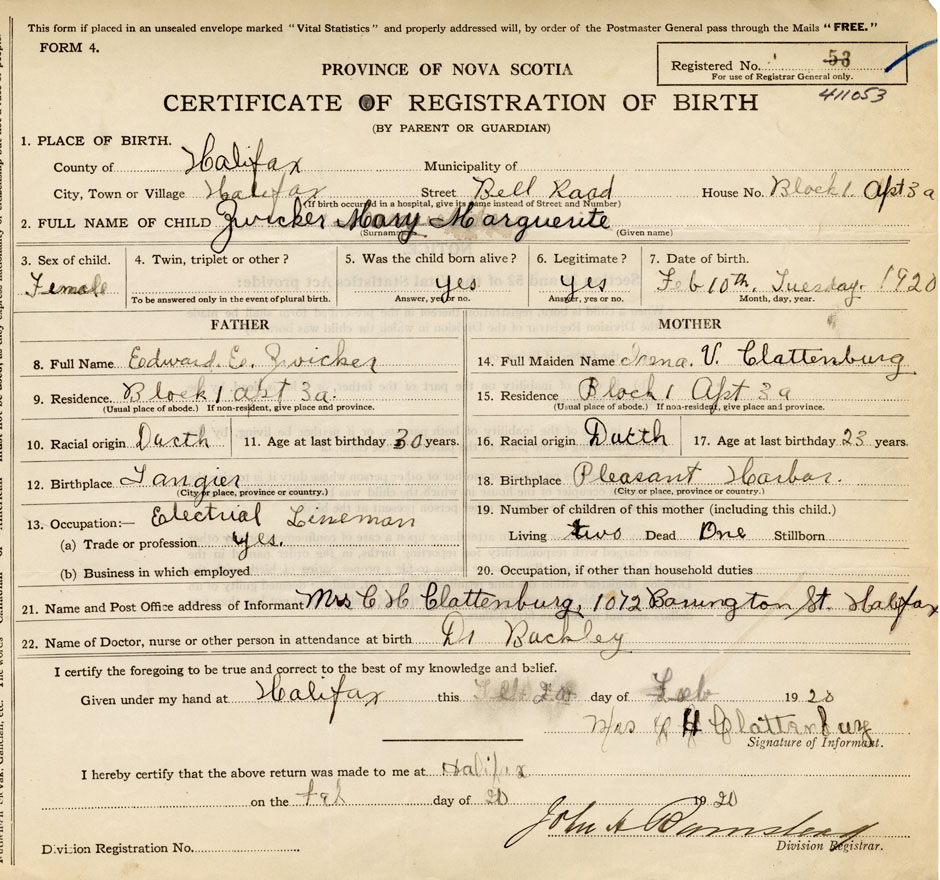 This form if placed in an unsealed envelope marked "Vital Statistics" and properly addressed will, by order of the Postmaster General pass through the Mails "FREE."
FORM 4.
Registered No. 53
For use of Registrar General only.
411053
PROVINCE OF NOVA SCOTIA
CERTIFICATE OF REGISTRATION OF BIRTH
(BY PARENT OR GUARDIAN)
1. PLACE OF BIRTH.
County of Halifax Municipality of
City, Town or Village Halifax Street Bell Road House No. Block 1 Apt 3a
(If birth occurred in a hospital, give its name instead of Street and Number)
2. FULL NAME OF CHILD Zwicker Mary Marguerite
(Surname) (Given name)
3. Sex of child. 4. Twin, triplet or other? 5. Was the child born alive? 6. Legitimate? 7. Date of birth.
Female yes yes Feb 10th, Tuesday. 1920
To be answered only in the event of plural birth. Answer, yes or no. Answer, yes or no. Month, day, year.
FATHER MOTHER
8. Full Name Edward. E. Zwicker 14. Full Maiden Name Irena. V. Clattenburg
9. Residence. Block 1 apt 3a. 15. Residence Block 1 Apt 3a
(Usual place of abode.) If non-resident, give place and province. (Usual place of abode.) If non-resident, give place and province.
10. Racial origin Ducth 11. Age at last birthday 30 years. 16. Racial origin Ducth 17. Age at last birthday 23 years.
12. Birthplace Tangier 18. Birthplace Pleasant Harbor.
(City or place, province or country.) (City or place, province or country.)
13. Occupation:— Electrial Lineman 19. Number of children of this mother (including this child.)
(a) Trade or profession yes. Living two Dead One Stillborn
(b) Business in which employed 20. Occupation, if other than household duties
21. Name and Post Office address of Informant Mrs C H Clattenburg, 1072 Barrington St. Halifax
22. Name of Doctor, nurse or other person in attendance at birth Dr Buckley
I certify the foregoing to be true and correct to the best of my knowledge and belief.
Given under my hand at Halifax this day of Feb 1920
Mrs C H Clattenburg
Signature of Informant.
I hereby certify that the above return was made to me at Halifax
on the day of 20 1920
John A Barnstead
Division Registration No. Division Registrar.